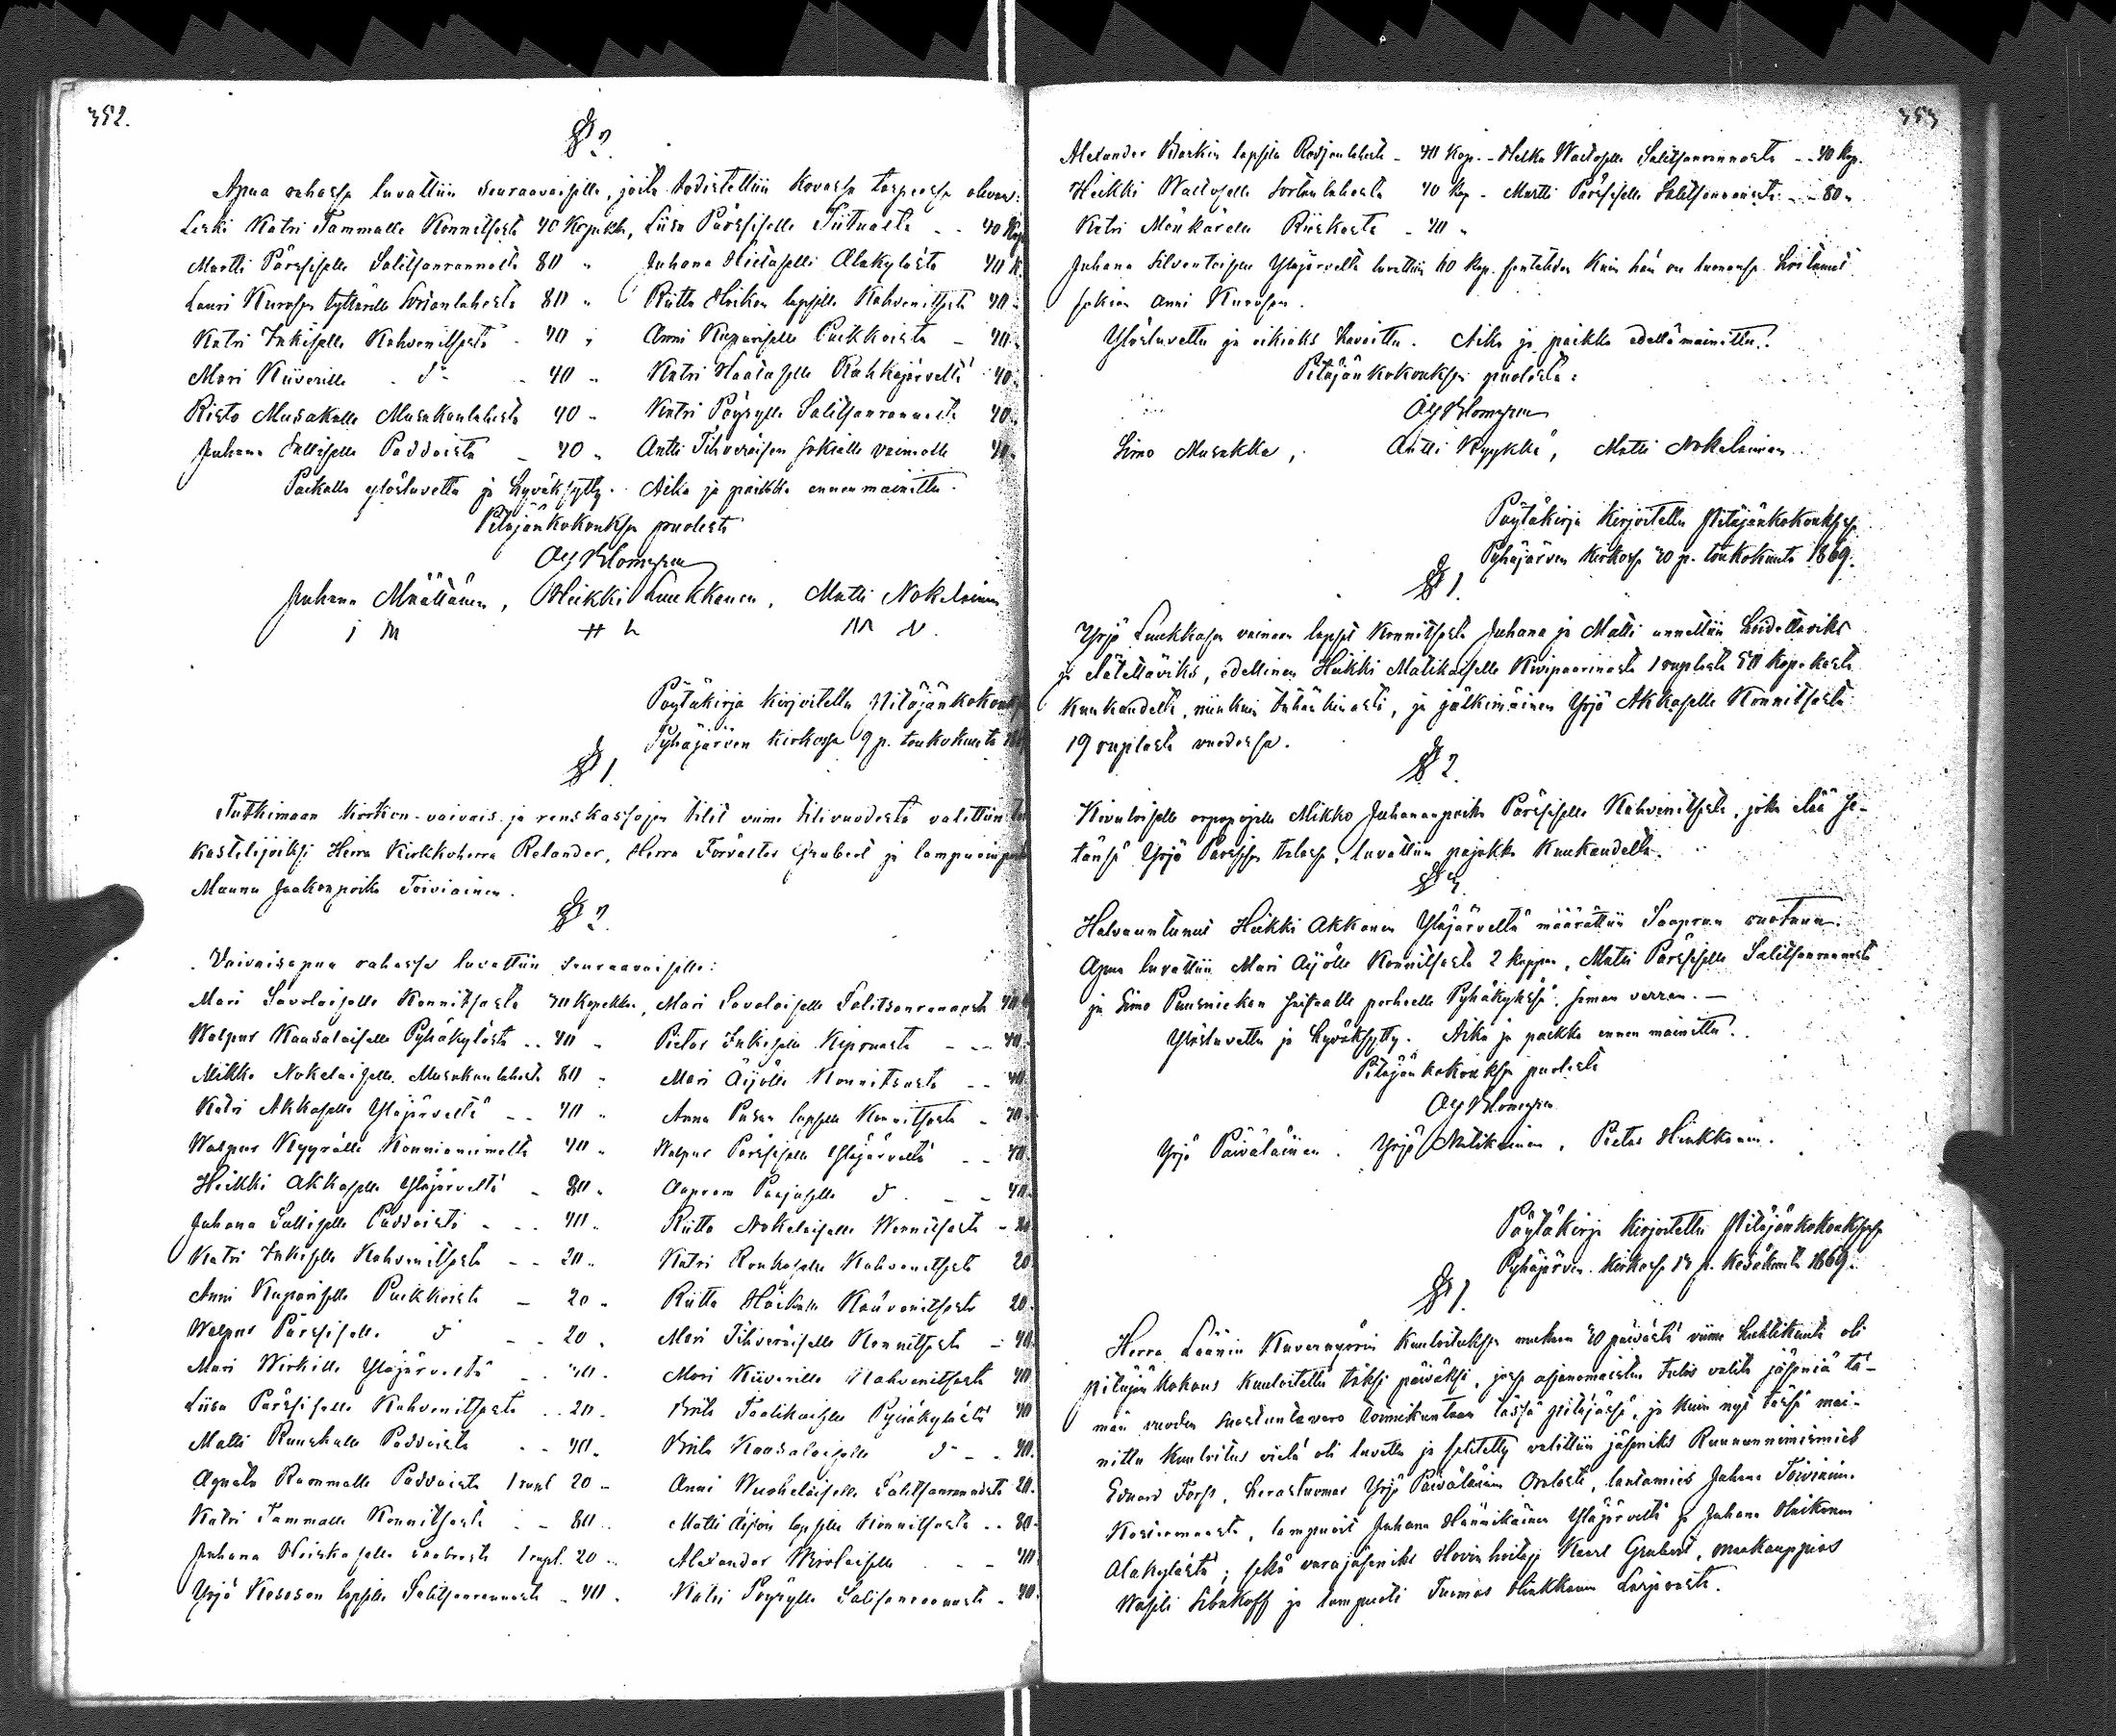 352.
§ 2.
Apua rahassa luvattiin seuraavaisille, joita todistettiin kovassa tarpeessa olevan:
Leski Katri Tammalle Konnitsasta 40 Kopekka, Liisa Pärssiselle Tiitualta - - 40 Kop
Martti Pärssiselle Salitsanrannalta 80 " Juhana Hietaselle Alakylästä 40 K.
Lauri Kurosen tyttärille Sortanlahesta 80 " Riitta Häikän lapsille Kahvenitsasta 40 "
Katri Inkiselle Kahvenitsasta - 40 " Anni Kupariselle Puikkoista - 40 "
Mari Kiiverille - d:o - 40 " Katri Haataselle Rahkajärveltä 40 "
Risto Musakalle Musakanlahesta 40 " Katri Pöyrylle Salitsanrannasta 40 "
Juhana Salliselle Paddoista - 40 " Antti Tihveräisen sokialle vaimolle 40 "
Paikalla ylösluvettu ja hyväksytty. Aika ja paikka ennenmainittu.
Pitäjänkokouksen puolesta
Alg Blomgren
Juhana Määttänen, Heikki Luukkanen, Matti Nokelainen
J M H L M N.
Pöytäkirja kirjoitettu Pitäjänkokouksessa
Pyhäjärven kirkossa 9 p. toukokuuta
§ 1.
Tutkimaan kirkon- vaivais- ja renskassojen tilit viime tilivuodesta valittiin
kastelijoiksi Herra Kirkkoherra Relander, Herra Förvalter Grubert ja lampuoti
Mannu Jaakonpoika Toiviainen.
§ 2.
Vaivaisapua rahassa luvattiin seuraavaisille:
Mari Savolaiselle Konnitsasta 40 Kopekka, Mari Savolaiselle Salitsanrannasta 40
Walpur Kaasalaiselle Pyhäkylästä - - 40 " Pietar Inkiselle Kipruasta - - - 40
Mikko Nokelaiselle Musakanlahesta 80 " Mari Äijölle Konnitsasta - - 40
Katri Akkaselle Yläjärveltä - - 40 " Anna Pusan lapselle Konnitsasta - 40
Walpur Kyyrölle Konnianniemeltä 40 " Walpur Pärssiselle Yläjärveltä - - 40
Heikki Akkaselle Yläjärveltä - 80 " Aapram Paajaselle d:o - - 40
Juhana Salliselle Paddoista - - - 40 " Riitta Nokelaiselle Wernitsasta - 20
Katri Inkiselle Kahvenitsasta - - 20 " Katri Ronkaselle Kahvenitsasta 20
Anni Kupariselle Puikkoista - 20 " Riitta Häikälle Kahvenitsasta 20
Walpur Pärssiselle d:o - - 20 " Mari Tihveräiselle Konnitsasta - 40
Mari Wirkille Yläjärveltä - 40 " Mari Kiiverille Kahvenitsasta 40
Liisa Pärssiselle Kahvenitsasta - - 20 " Brita Toolikaiselle Pyhäkylästä 40
Matti Ruuskalle Paddoista - - 40 " Brita Kaasalaiselle d:o - - 40
Agneta Rammalle Paddoista 1 rupl 20 " Anni Wuohelaiselle Salitsanrannasta 20
Katri Tammalle Konnitsasta - - 80 " Matti Äijön lapsille Konnitsasta - - 80
Juhana Heiskaselle 1 rupl. 20 " Alexander Wirolaiselle - - 40
Yrjö Kososen lapsille Salitsanrannasta - 40 " Katri Pöyrylle Salitsanrannasta - 40
353
Alexander Barkin lapsille Rodjonlahesta - 40 Kop. - Helka Waitoselle Salitsanrannasta - - 40 Kop.
Heikki Waitoselle Sortanlahesta 40 Kop - Martti Pärssiselle Salitsanrannasta - - 80 "
Katri Mönkärelle Riiskasta - 40 "
Juhana Silventoisen Yläjärveltä luvattiin 60 Kop. hän on luonansa hoitanut
sokian Anni Kurosen.
Ylösluvettu ja oikiaks havaittu. Aika ja paikka edellämainittu.
Pitäjänkokouksen puolesta:
Alg Blomgren
Simo Musakka, Antti Kyykkä, Matti Nokelainen
Pöytäkirja kirjoitettu Pitäjänkokouksessa
Pyhäjärven kirkossa 30 p. toukokuuta 1869.
§ 1.
Yrjö Luukkasen vainaan lapset Konnitsasta Juhana ja Matti annettiin hoidettaviks
ja elätettäviks, edellinen Heikki Matikaiselle Kivipaarinasta 1 ruplasta 50 kopekasta
kuukaudelta, niinkuin tähänkin asti, ja jälkimäinen Yrjö Akkaselle Konnitsasta
19 ruplasta vuodessa.
§ 2.
Kivuloiselle orpopojalle Mikko Juhananpoika Pärssiselle Kahvenitsasta, joka elää se-
tänsä Yrjö Pärssisen talossa, luvattiin pajokka kuukaudelta.
§ 3.
Halvauntunut Heikki Akkanen Yläjärveltä määrättiin Saapron ruotuun.
Apua luvattiin Mari Äijölle Konnitsasta 2 kappaa, Matri Pärssiselle Salitsanrannasta
ja Simo Puusniekan perheelle Pyhäkylässä saman verran. -
Ylösluvettu ja hyväksytty. Aika ja paikka ennen mainittu.
Pitäjänkokouksen puolesta
Alg Blomgren
Yrjö Päiväläinen. Yrjö Matikainen, Pietar Hinkkanen.
Pöytäkirja kirjoitettu Pitäjänkokouksessa
Pyhäjärven kirkossa 13 p. kesäkuuta 1869.
§ 1.
Herra Läänin Kuvernyörin kuulutuksen mukaan 30 päivästä viime huhtikuuta oli
pitäjän kokous kuulutettu täksi päiväksi, jossa asianomaisten tulis valita jäseniä tä-
män vuoden suostuntavero toimikuntaan tässä pitäjässä, ja kuin nyt tässä mai-
nittu kuulutus vielä oli luvettu ja selitetty valittiin jäseniks Ruununnimismies
Eduard Forss, herastuomar Yrjö Päiväläinen Orolasta, lautamies Juhana Toiviainen
Kosiermaasta, lampuoti Juhana Hännikäinen Yläjärveltä ja Juhana Häikänen
Alakylästä; sekä varajäseniks Hovin hoitaja Karl Grubert, maakauppias
Wasili Sibakoff ja lampuoti Tuomas Hinkkanen Larjavasta.